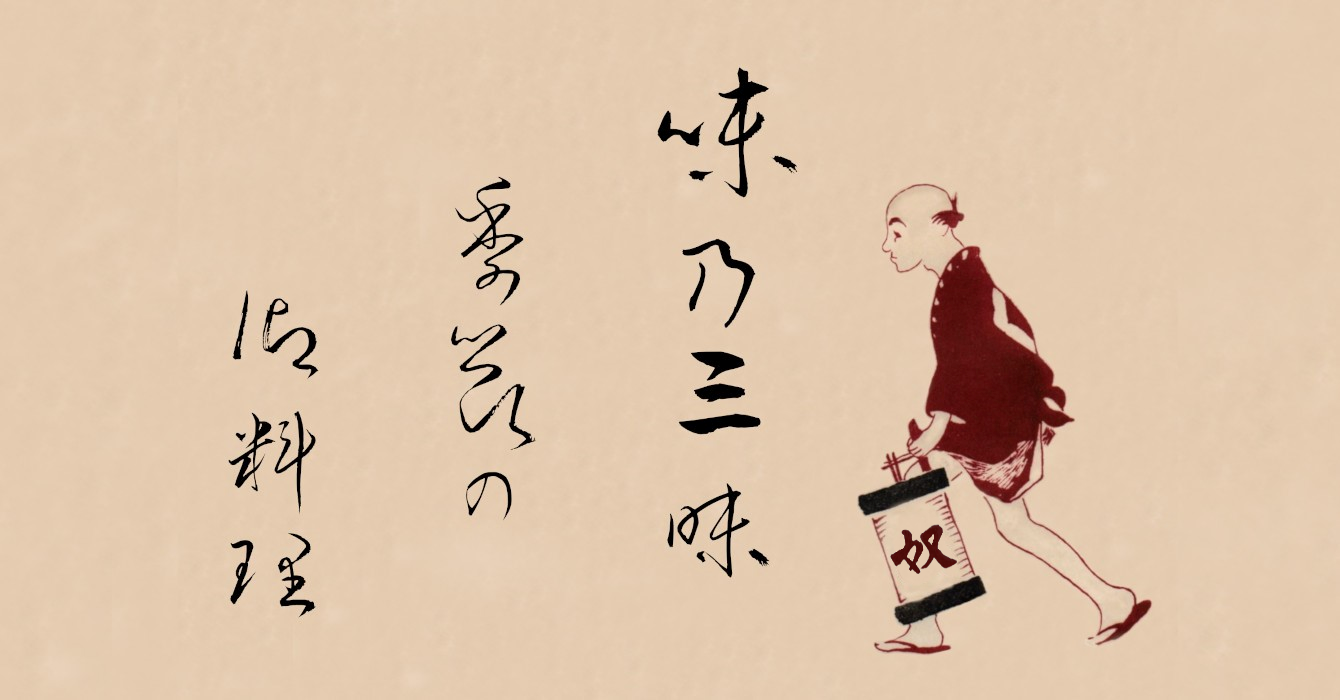 味乃三昧
季節の
御料理
奴